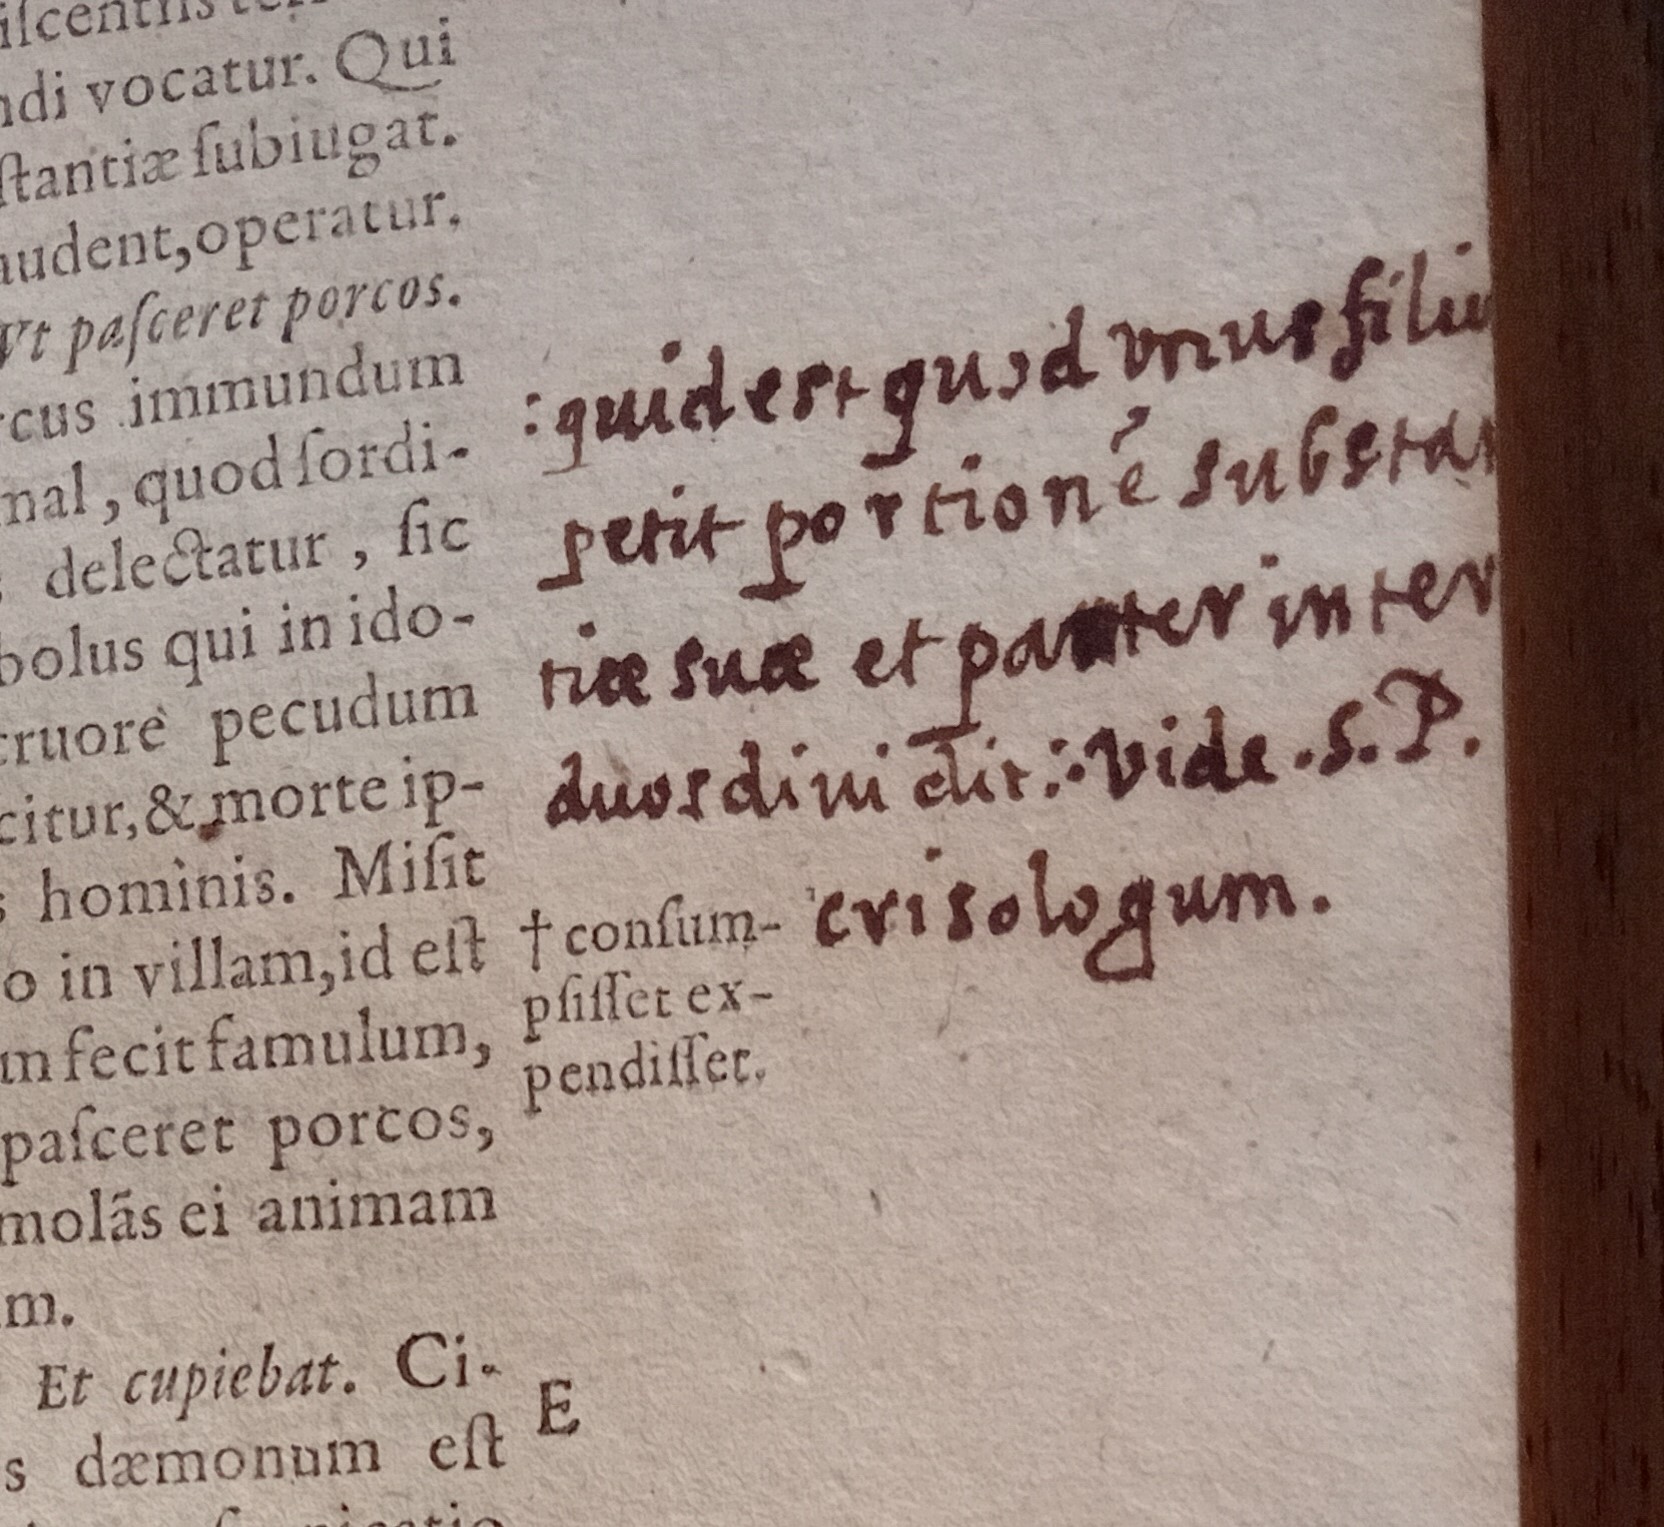 ndi vocatur. Qui
ſtantiæ ſubiugat.
audent, operatur.
Vt paſceret porcos.
rcus immundum
mal, quod ſordi-
delectatur, ſic
bolus qui in ido-
cruore pecudum
citur, & morte ip-
s hominis. Miſit
o in villam, id eſt
m fecit famulum,
paſceret porcos,
molãs ei animam
m.
Et cupiebat. Ci-
s dæmonum eſt
: quid est quod vnus filiu
petit portioné substan
tiæ suæ et pater inter
duos diui dit : vide . s. P.
crisologum.
† conſum-
pſiſſet ex-
pendiſſet.
E